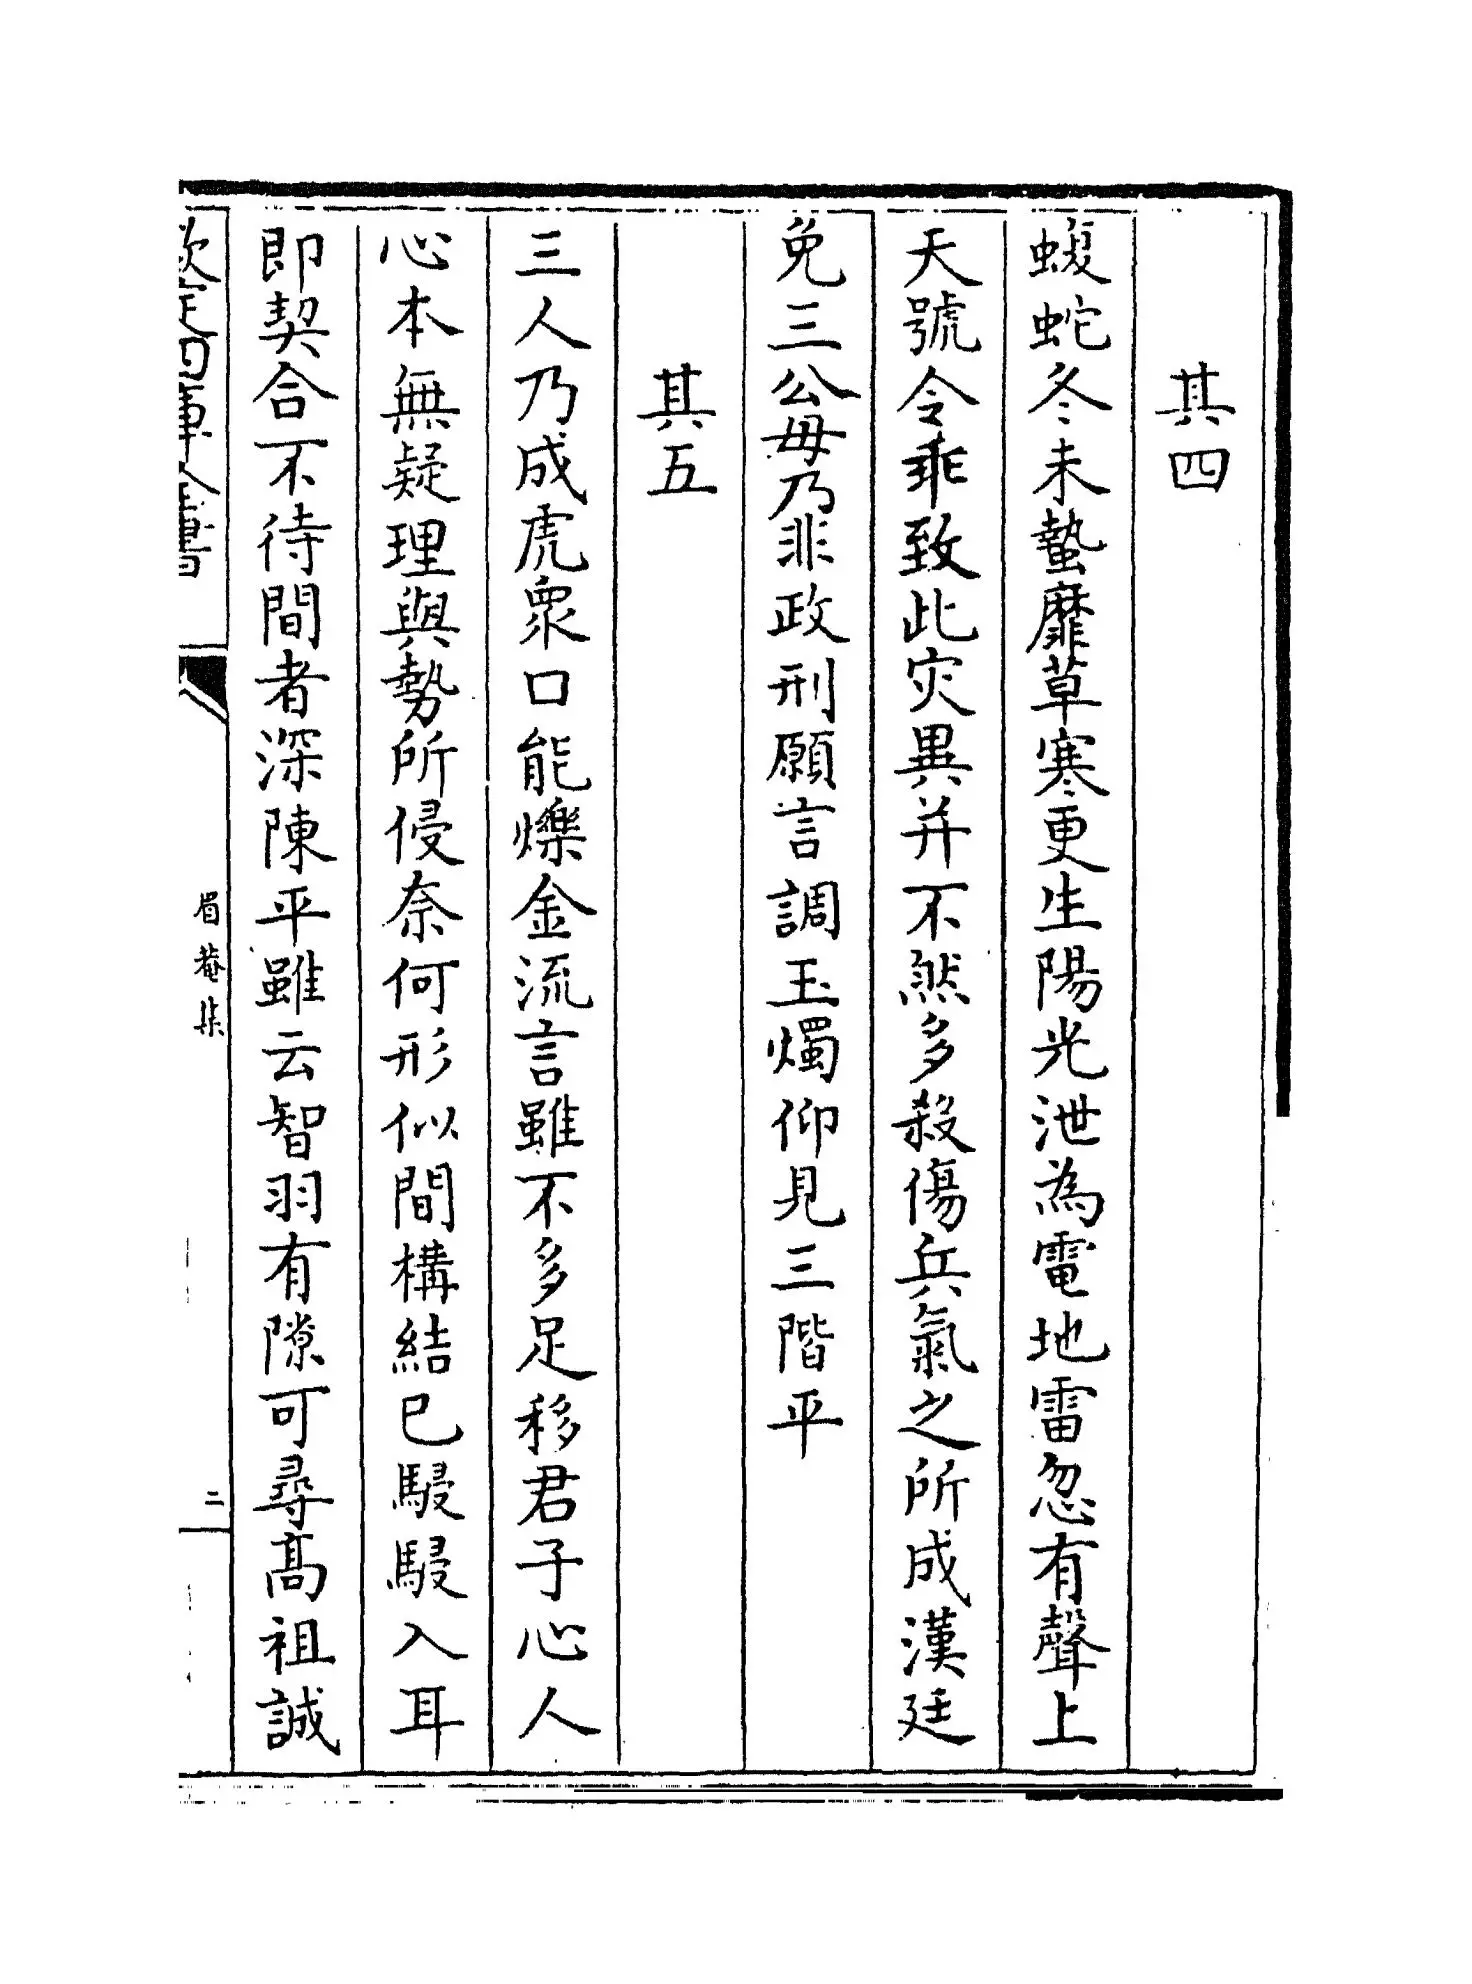 其四
蝮蛇冬未蟄靡草寒更生陽光泄為電地雷忽有聲上
天號令乖致此灾異并不然多殺傷兵氣之所成漢廷
免三公毋乃非政刑願言調玉燭仰見三階平
其五
三人乃成虎衆口能爍金流言雖不多足移君子心人
心本無疑理與勢所侵奈何形似間構結已駸駸入耳
即契合不待間者深陳平雖云智羽有隙可尋髙祖誠
欽定四庫全書
眉菴集
二